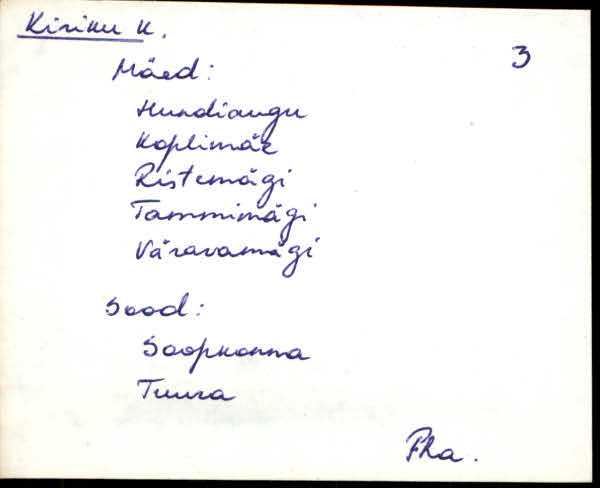 Kiriku k.
3
Mäed:
Hundiaugu
Koplimäe
Ristemägi
Tammimägi
Väravamägi
Sood:
Soopkonna
Tuura
Fha.